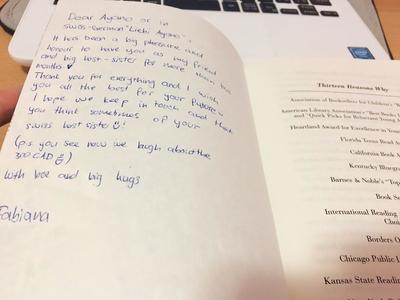 Dear Ayano or in
swiss-German "Liebi Ayano".
It has been a big pleasure and
honour to have you as my friend
and big host-sister for more than
months ♥
Thank you for everything and I wish
you all the best for your future.
I hope we keep in touch and that
you think sometimes of your
swiss host sister
(p.s. you see now we laugh about the
300 CAD
With love and big hugs
Fabiana
intel
Thirteen Reasons Why
Association of Booksellers for Children's "B
American Library Association's "Best Books
and "Quick Picks for Reluctant Young A
Heartland Award for Excellence in Young
Florida Teens Read A
California Book A
Kentucky Bluegr
Barnes & Noble's "Top
Book Se
International Reading
Choi
Borders O
Chicago Public L
Kansas State Reading